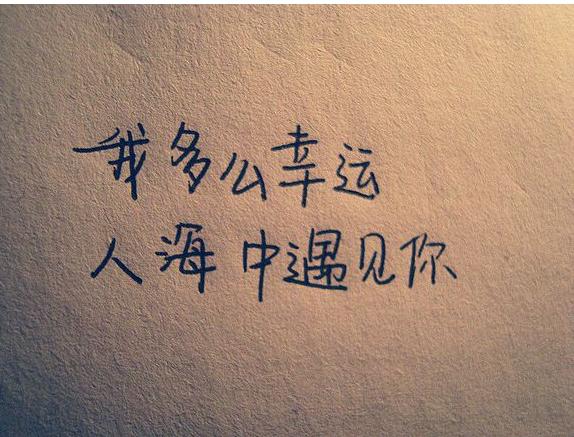 我多么幸运
人海中遇见你